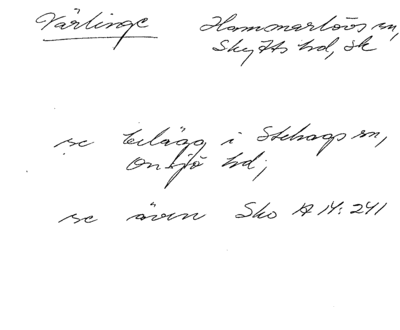 Värlinge Hammarlövs sn,
Skytts hd, Sk
se Eilägg i Stehags sn,
Onsjö hd;
se även Sko A 14: 241